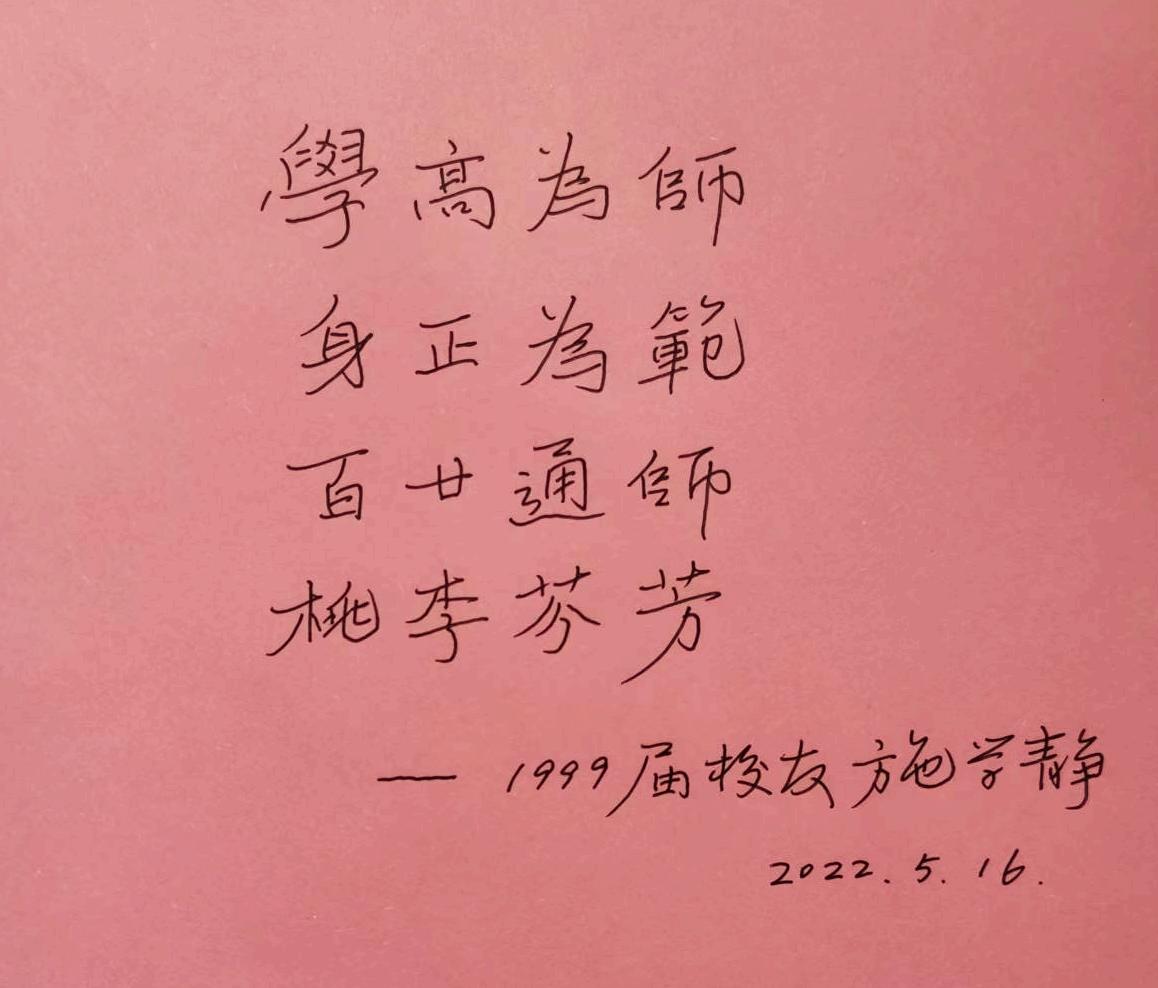 學高為師
身正為範
百廿通師
桃李芬芳
— 1999届校友施学静
2022.5.16.